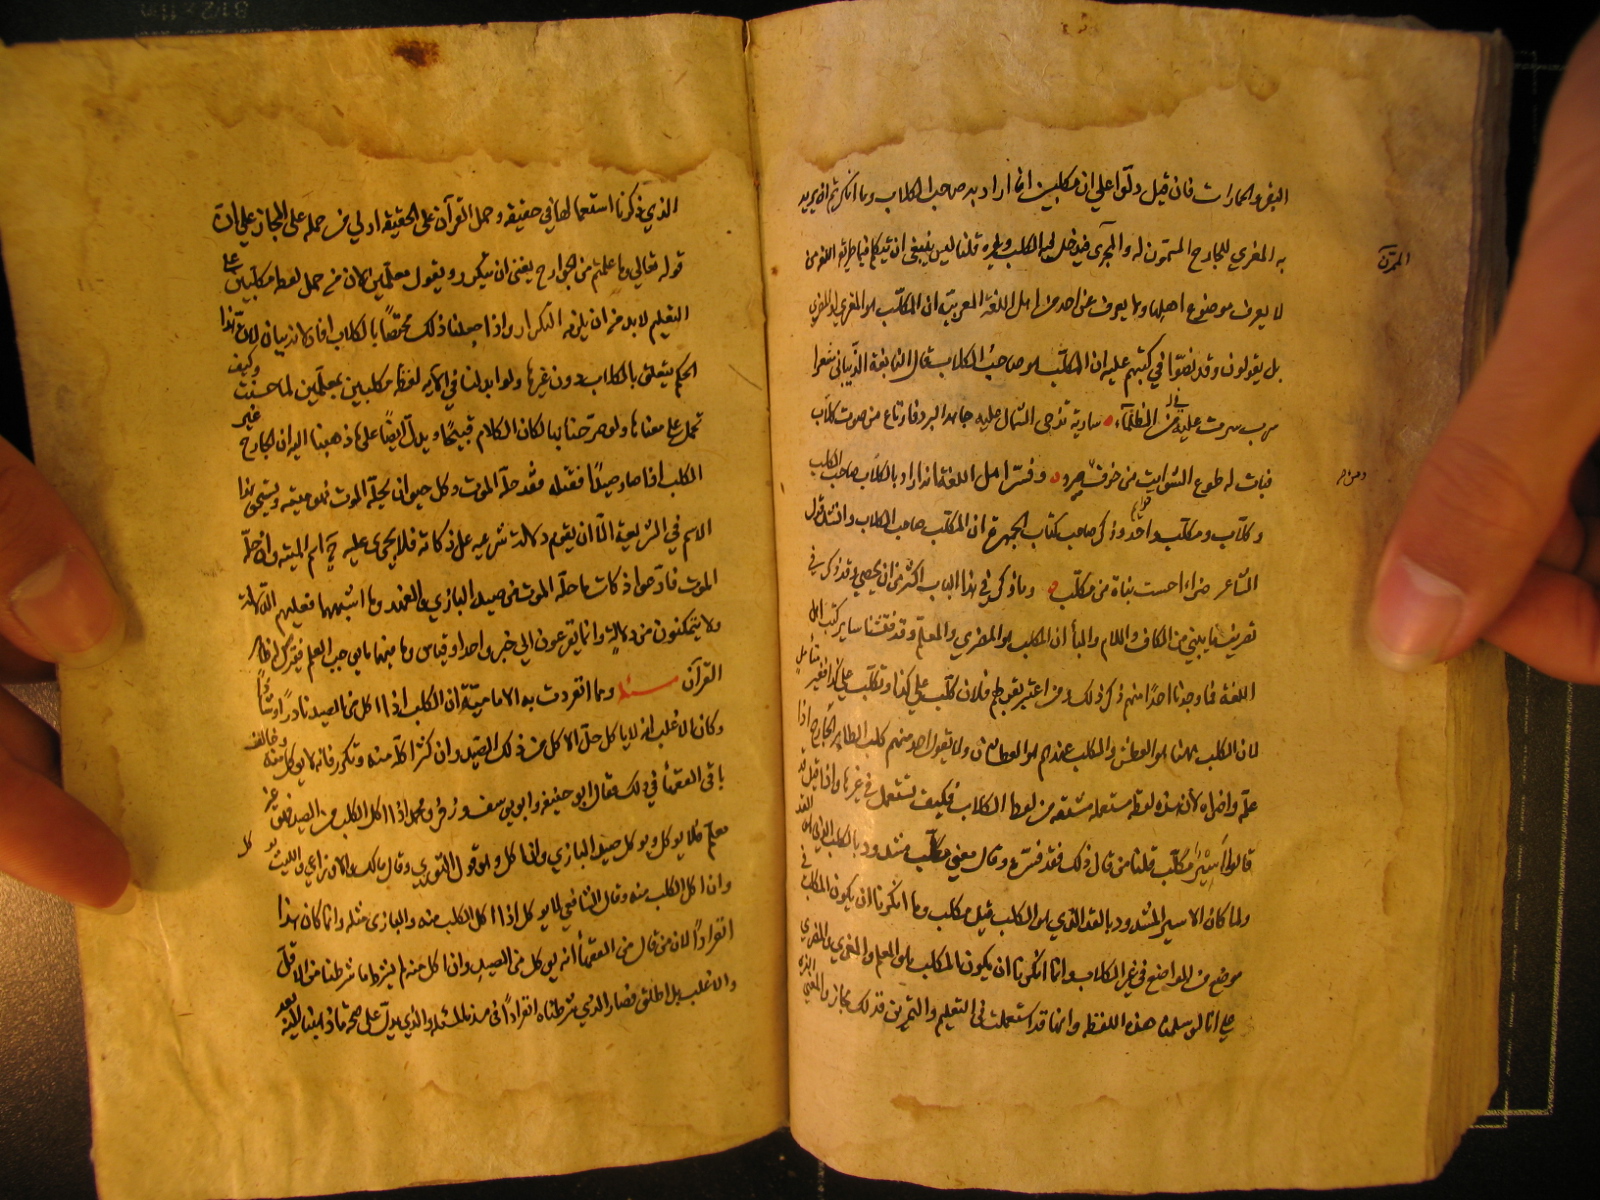 البقر والحمارات فان قيل دلوا على ان مكلبين انما اراد به صاحب الكلاب وما انكرتم ان يريد
به المغري للجارح الممرن له والمجري فيدخل فيه الكلب وغيره قلنا ليس ينبغي ان يتكلم فيما طريقه اللغة من
الممرن
لا يعرف موضوع اهلها ولا يعرف عن احد من اهل اللغة العربية ان المكلب هو المغري والمضري
بل يقولون وقد نصوا في كتبهم عليه ان المكلب هو صاحب الكلاب قال النابغة الذبياني شعرا
سرت عليه من الظلماء سارية تزجى الشمال عليه جامد البرد فارتاع من صوت كلاب
فبات له طوع الشوامت من خوف ومن صرد وفسر اهل اللغة انه اراد بالكلاب صاحب الكلب
وكلاب ومكلب واحد وذكر صاحب كتاب الجمهرة ان المكلب صاحب الكلاب وانشد قول
الشاعر ضراء احست نباة من مكلب وما ذكر في هذا الباب اكثر من ان يحصى وقد ذكر في
تعريف ما يبنى من الكاف واللام والبا ان المكلب هو المضري والمعلم وقد فتشنا ساير كتب اهل
اللغة فما وجدنا احدا منهم ذكر ذلك ومن اعتبر بقولهم فلان كلب على كذا وتكلب على كذا فغير متامل
لان الكلب ههنا هو العطش والمكلب عندهم هو العطشان ولا يقول احد منهم كلب الطاير الجارح اذا
علمه واضراه لان هذه لفظة مستعملة مشتقة من لفظ الكلاب فكيف تستعمل في غيرها واذا قيل قد
قالوا اسير مكلب قلنا من قال ذلك فقد فسره وقال معنى مكلب مشدود بالكلب الذي هو القد
ولما كان الاسير المشدود بالقد الذي هو الكلب قيل مكلب وما انكرنا ان يكون المكلب في
موضع من المواضع في غير الكلاب وانما انكرنا ان يكون المكلب هو المعلم والمغري والمضري
على انا لو سلمنا هذه اللفظة وانها قد استعملت في التعليم والتمرين فذلك مجاز والمعنى الذي
الذي ذكرنا استعمالها في حقيقة وحمل القرآن على الحقيقة اولى من حمله على المجاز على ان
قوله تعالى وما علمتم من الجوارح يغني ان يتكرر ويقول معلمين لان من حمل لفظة مكلبين على
التعليم لا بد من ان يلزمه التكرار واذا جعلنا ذلك مختصا بالكلاب افاد لانه بيان لان هذا
الحكم يتعلق بالكلاب دون غيرها ولو ابدلنا في الآية لفظة مكلبين بمعلمين لما حسنت وكيف
تحمل على معناها ولو صرحنا بها لكان الكلام قبيحا ويدل ايضا على ما ذهبنا اليه ان الجارح غير
الكلب اذا صاد صيدا فقتله فقد حله الموت وكل حيوان يحله الموت فهو ميتة ويستحق هذا
الاسم في الشريعة الا ان يقوم دلالة شرعية على ذكاته فلا يجرى عليه ح اسم الميتة وان حله
الموت فان ادعوا ذكاة ما حله الموت من صيد البازي والفهد وما اشبههما فعليهم الدلالة
ولا يتمكنون من دلالة وانما يفزعون الى خبر واحد او قياس وما منهما ما يوجب العلم فيترك له ظاهر
القرآن مسئلة ومما انفردت به الامامية ان الكلب اذا اكل من الصيد نادرا او شاذا
وكان الاغلب انه لا ياكل حل الاكل من ذلك الصيد وان كثر اكله منه وتكرر فانه لا يوكل منه وخالف
باقي الفقهأ في ذلك فقال ابو حنيفة وابو يوسف وزفر ومحمد اذا اكل الكلب من الصيد فهو غير
معلم فلا يوكل ويوكل صيد البازي وان اكل وهو قول الثوري وقال مالك والاوزاعي والليث يوكل
وان اكل الكلب منه وقال الشافعي لا يوكل اذا اكل الكلب منه والبازي مثله وانما كان هذا
انفرادا لان من قال من الفقهأ انه يوكل من الصيد وان اكل منه لم يشترط ما شرطنا من الاقل
والاغلب بل اطلق فصار الذي شرطناه انفرادا في هذه المسئلة والذي يدل على صحة ما ذهبنا اليه بعد